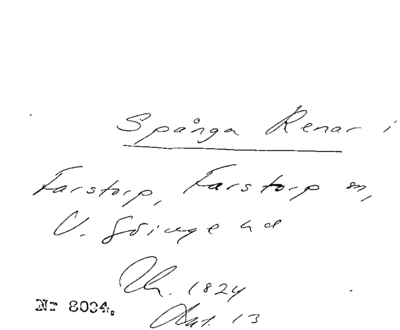 Spånga Renar i
Farstorp, Farstorp sn,
V. Göinge hd
Uh. 1824
Dat. 13
Nr 8034.